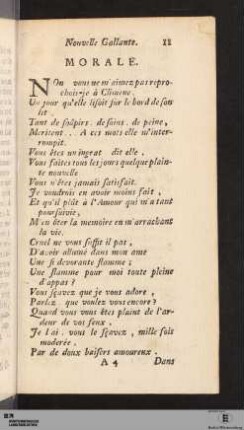 Nouvelle Gallante. 11
MORALE.
NOn vous ne m'aimez pas repro-
chois-je à Climene,
Un jour qu'elle lisoit sur le bord de son
lit,
Tant de soûpirs, de soins, de peine,
Meritent... A ces mots elle m'inter-
rompit.
Vous êtes un ingrat dit elle,
Vous faites tous les jours quelque plain-
te nouvelle
Vous n'êtes jamais satisfait.
Je voudrois en avoir moins fait,
Et qu'il plût à l'Amour qui m'a tant
poursuivie,
M'en ôter la memoire en m'arrachant
la vie.
Cruel ne vous suffit il pas,
D'avoir allumé dans mon ame
Une si devorante flamme;
Une flamme pour moi toute pleine
d'appas?
Vous sçavez que je vous adore,
Parlez, que voulez vous encore?
Quand vous vous êtes plaint de l'ar-
deur de vos feux,
Je l'ai, vous le sçavez, mille fois
moderée,
Par de doux baisers amoureux,
A 4 Dans